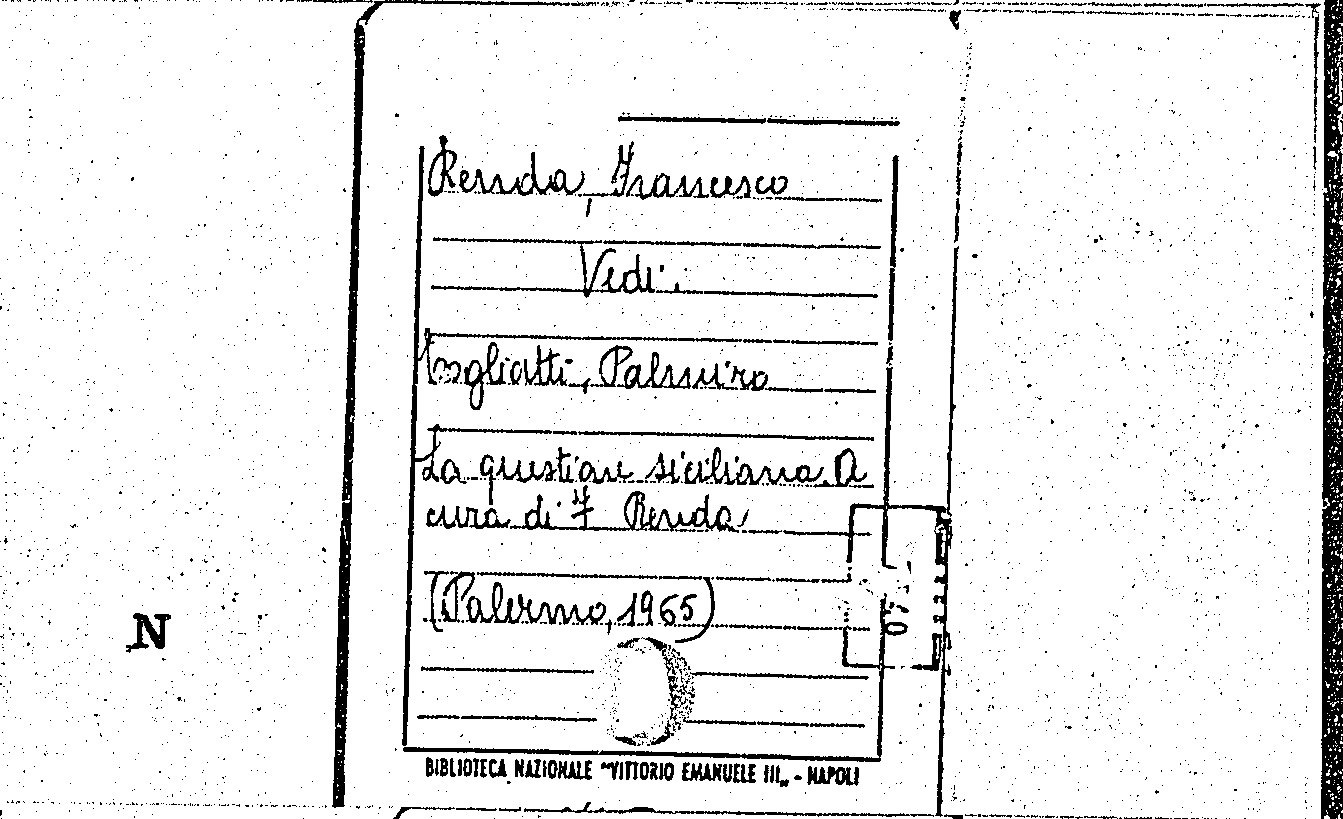 Renda, Francesco
Vedi.
Togliatti, Palmiro
La questione siciliana. A
cura di F. Renda
(Palermo, 1965)
N
BIBLIOTECA NAZIONALE "VITTORIO EMANUELE III„ - NAPOLI